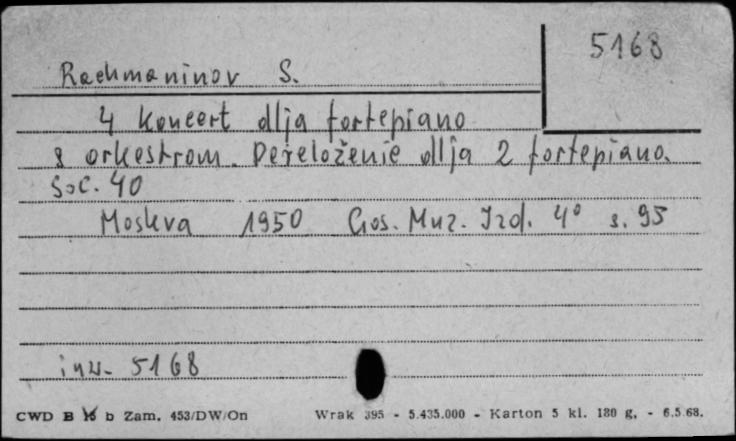 5168
Rachmaninov S.
4 koncert dlja fortepiano
s orkestrom. Pereloženie dlja 2 fortepiano.
Soč. 40
Moskva 1950 Gos. Muz. Izd. 4° s. 95
inw. 5168
CWD B b Zam. 453/DW/On Wrak 395 - 5.435.000 - Karton 5 kl. 180 g, - 6.5.68.